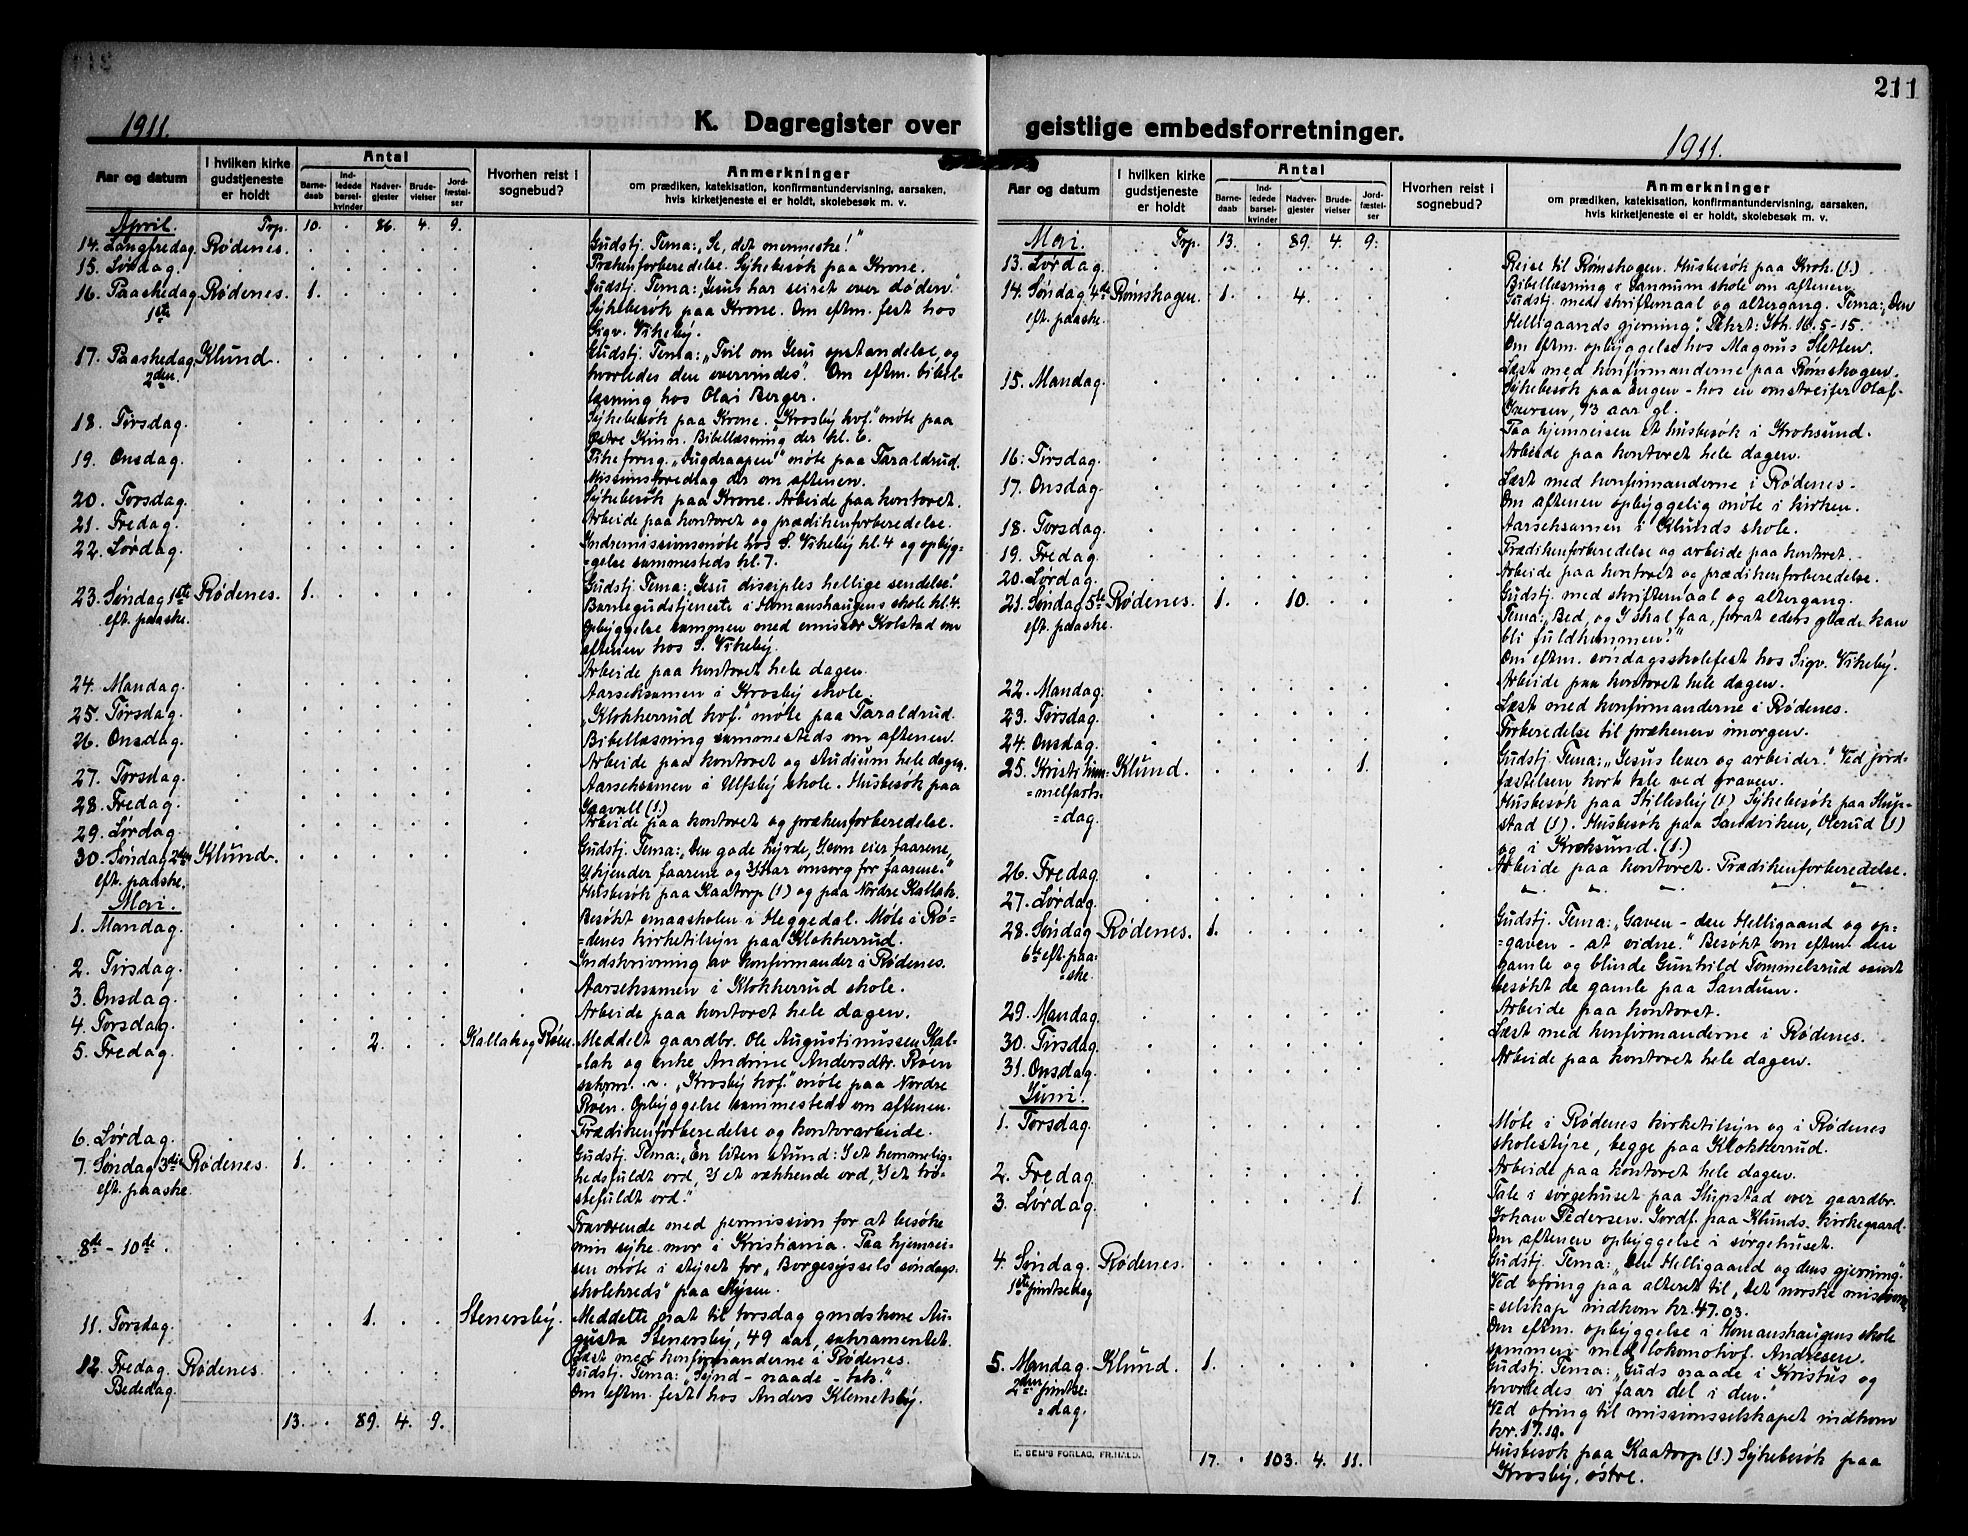 211
1911.
K. Dagregister over
Aar og datum
I hvilken kirke gudstjeneste er holdt
Antal
Barne-daab
Ind-ledede barsel-kvinder
Nadver-gjester
Brude-vielser
Jord-fæstel-ser
Hvorhen reist i sognebud?
Anmerkninger
om prædiken, katekisation, konfirmantundervisning, aarsaken,
hvis kirketjeneste ei er holdt, skolebesøk m. v.
April. Trp. 10. . 86. 4. 9.
14. Langfredag. Rødenes. Gudstj. Tema: „Se, det menneske!"
15. Lørdag. Prækenforberedelse. Sykebesøk paa Krone.
16. Paaskedag Rødenes. 1. Gudstj. Tema: „Jesus har seiret over døden."
1ste Sykebesøk paa Krone. Om eftm. fest hos
Sigv. Vikeby.
17. Paaskedag Klund. Gudstj. Tema: „Tvil om Jesu opstandelse, og
2den. hvorledes den overvindes". Om eftm. bibel-
læsning hos Olai Berger.
18. Tirsdag. Sykebesøk paa Krone. „Krosby kvf." møte paa
Østre Kinn. Bibellæsning der kl. 6.
19. Onsdag. Pikeforng. „Dugdraapen" møte paa Taraldrud.
Missionsforedrag der om aftenen.
20. Torsdag. Sykebesøk paa Krone. Arbeide paa kontoret.
21. Fredag. Arbeide paa kontoret og prædikenforberedelse.
22. Lørdag. Indremissionsmøte hos S. Vikeby kl. 4 og opbyg-
=gelse sammesteds kl. 7.
23. Søndag 1ste Rødenes. 1. Gudstj. Tema: „Jesu disciples hellige sendelse."
eft. paaske. Barnegudstjeneste i Homanshaugens skole kl. 4.
Opbyggelse sammen med emissær Kolstad om
aftenen hos S. Vikeby.
24. Mandag. Arbeide paa kontoret hele dagen.
25. Tirsdag. Aarseksamen i Krosby skole.
26. Onsdag. „Klokkerrud kvf." møte paa Taraldrud.
Bibellæsning sammesteds om aftenen.
27. Torsdag. Arbeide paa kontoret og studium hele dagen.
28. Fredag. Aarseksamen i Ulfsby skole. Husbesøk paa
(1.)
29. Lørdag. Arbeide paa kontoret og prækenforberedelse.
30. Søndag 2den Klund. Gudstj. Tema: „Den gode hyrde, 1) som eier faarene,
eft. paaske. 2) kjender faarene og 3) har omsorg for faarene."
Husbesøk paa Kaatorp (1) og paa Nordre Kallak.
Mai.
1. Mandag. Besøkt smaaskolen i Heggedal. Møte i Rø=
=denes kirketilsyn paa Klokkerrud.
2. Tirsdag. Indskrivning av konfirmander i Rødenes.
3. Onsdag. Aarseksamen i Klokkerrud skole.
4. Torsdag. Arbeide paa kontoret hele dagen.
5. Fredag. 2. Kallak og Røen. Meddelt gaardbr. Ole Augustinussen Kal-
=lak og enke Andrine Andersdtr. Røen
sakrm. „Krosby kvf." møte paa Nordre
Røen. Opbyggelse sammesteds om aftenen.
6. Lørdag. Prædikenforberedelse og kontorarbeide.
7. Søndag 3die Rødenes. 1. Gudstj. Tema: „En liten stund: 1) et hemmelig-
eft. paaske. hedsfuldt ord, 2) et vækkende ord, 3) et trø-
stefuldt ord."
8de - 10de. Fraværende med permission for at besøke
min syke mor i Kristiania. Paa hjemrei-
sen møte i styret for „Borgesyssels søndags-
skolekreds" paa Mysen.
11. Torsdag. 1. Stenersby. Meddelte nat til torsdag gmdskone Au-
gusta Stenersby, 49 aar, sakramentet.
Læst med konfirmanderne i Rødenes.
12. Fredag. Rødenes. Gudstj. Tema: „Synd - naade - tak."
Bededag. Om eftm. fest hos Anders Klemetsby.
13. . 89. 4. 9.
geistlige embedsforretninger.
1911.
Aar og datum
I hvilken kirke gudstjeneste er holdt
Antal
Barne-daab
Ind-ledede barsel-kvinder
Nadver-gjester
Brude-vielser
Jord-fæstel-ser
Hvorhen reist i sognebud?
Anmerkninger
om prædiken, katekisation, konfirmantundervisning, aarsaken,
hvis kirketjeneste ei er holdt, skolebesøk m. v.
Mai. Trp. 13. . 89. 4. 9.
13. Lørdag. Reise til Rømskogen. Husbesøk paa Krok. (1.)
Bibellæsning i Sannum skole om aftenen.
14. Søndag 4de Rømskogen. 1. . 4. Gudstj. med skriftemaal og altergang. Tema: „Den
eft. paaske. Helligaands gjerning". Tekst: Joh. 16. 5-15.
Om eftm. opbyggelse hos Magnus Sletten.
15. Mandag. Læst med konfirmanderne paa Rømskogen.
Sykebesøk paa Engen - hos en omstreifer Olaf
Iversen, 93 aar gl.
Paa hjemreisen et husbesøk i Kroksund.
16. Tirsdag. Arbeide paa kontoret hele dagen.
17. Onsdag. Læst med konfirmanderne i Rødenes.
Om aftenen opbyggelig møte i kirken.
18. Torsdag. Aarseksamen i Klunds skole.
19. Fredag. Prædikenforberedelse og arbeide paa kontoret.
20. Lørdag. Arbeide paa kontoret og prædikenforberedelse.
21. Søndag 5te Rødenes. 1. . 10. Gudstj. med skriftemaal og altergang.
eft. paaske. Tema: „Bed, og I skal faa, forat eders glæde kan
bli fuldkommen!"
Om eftm. søndagsskolefest hos Sigv. Vikeby.
22. Mandag. Arbeide paa kontoret hele dagen.
23. Tirsdag. Læst med konfirmanderne i Rødenes.
24. Onsdag. Forberedelse til prækenen imorgen.
25. Kristi him= Klund. 1. Gudstj. Tema: „Jesus lever og arbeider." Ved jord-
=melfarts= fæstelsen kort tale ved graven.
=dag. Husbesøk paa Stillesby (1) Sykebesøk paa Slup-
stad (1). Husbesøk paa Sandviken, Olerud (1)
og i Kroksund. (1.)
26. Fredag. Arbeide paa kontoret. Prædikenforberedelse.
27. Lørdag. „ „ „ „
28. Søndag Rødenes. 1. Gudstj. Tema: „Gaven - den Helligaand og op=
6te eft. paa= =gaven - at vidne." Besøkt om eftm. den
=ske. gamle og blinde Gunhild Tommelsrud samt
besøkt de gamle paa Sandum.
29. Mandag. Arbeide paa kontoret.
30. Tirsdag. Læst med konfirmanderne i Rødenes.
31. Onsdag. Arbeide paa kontoret hele dagen.
Juni.
1. Torsdag. Møte i Rødenes kirketilsyn og i Rødenes
skolestyre, begge paa Klokkerrud.
2. Fredag. Arbeide paa kontoret hele dagen.
3. Lørdag. 1. Tale i sørgehuset paa Slupstad over gaardbr.
Johan Pedersen. Jordf. paa Klunds kirkegaard.
Om aftenen opbyggelse i sørgehuset.
4. Søndag. Rødenes. Gudstj. Tema: „Den Helligaand og dens gjerning."
1ste pintsedag Ved ofring paa alteret til „Det norske missions
=selskap" indkom kr. 47.03.
Om eftm. opbyggelse i Homanshaugens skole
sammen med lokomotivf. Andresen.
5. Mandag. Klund. 1. Gudstj. Tema: „Guds naade i Kristus og
2den pintse= hvorledes vi faar del i den."
=dag. Ved ofring til missionsselskapet indkom
kr. 17.19.
Husbesøk paa Kaatorp (1.) Sykebesøk paa
Krosby, østre.
17. . 103. 4. 11.
E. SEM'S FORLAG, FR.HALD.